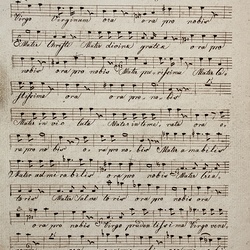 Virgo Virginum ora ora pro nobis
Mater Christi Mater divina gratia ora pro
nobis ora pro nobis Mater purissima Mater ca-
stissima ora ora pro nobis
Mater invio lata Mater inteme rata ora o-
ra pro no bis o- ra pro no- bis Mater a ma bi lis
Mater ad mi ra bi lis ora pro no bis Mater Crea-
toris Mater Salva to ris ora pro nobis ora
ora pro nobis Virgo prudentissima Virgo vene-